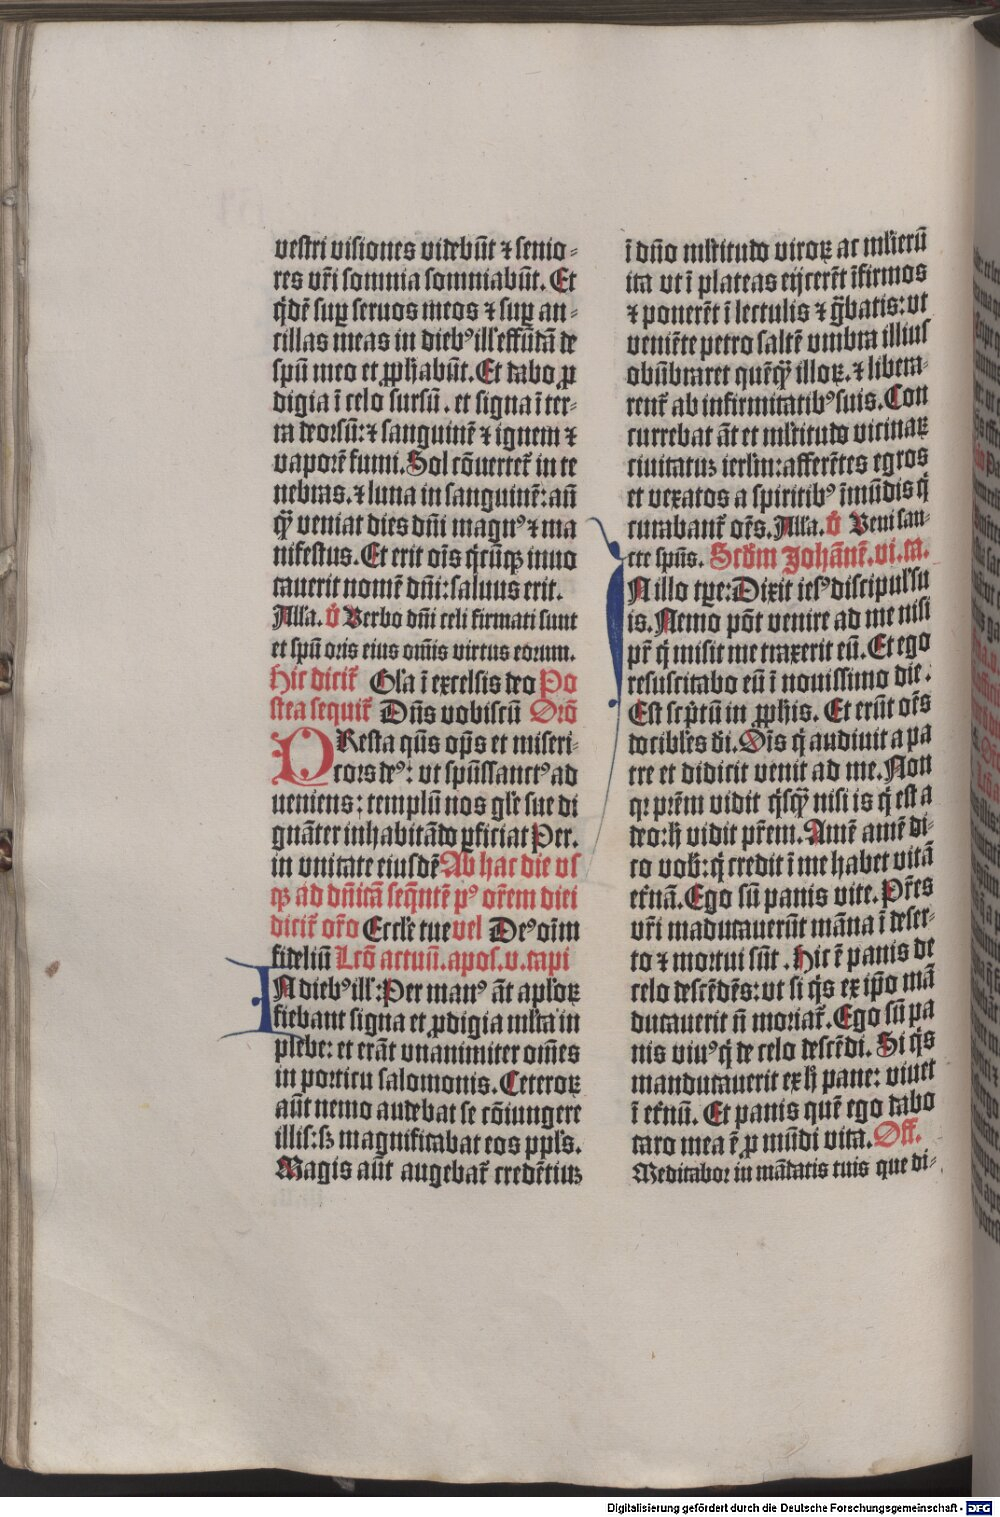 vestri visiones videbūt ⁊ senio-
res vr̄i somnia somniabūt. Et
q̇dē suꝑ seruos meos ⁊ suꝑ an-
cillas meas in dieb⁹ ill' effūdā de
spū meo et ꝓph̄abūt. Et dabo ꝓ
digia ī celo sursū . et signa ī ter-
ra deorsū: ⁊ sanguinē ⁊ ignem ⁊
vaporē fumi. Sol cōuertet᷑ in te
nebras. ⁊ luna in sanguinē: an̄
q̄ꝫ veniat dies dn̄i magn⁹ ⁊ ma
nifestus. Et erit oīs q̇cūqꝫ inuo
cauerit nomē dn̄i: saluus erit.
Alla. v̇ Verbo dn̄i celi firmati sunt
et spū oris eius om̄is virtus eorum.
Hic dicit᷑ Gl'a ī excelsis deo Po
stea sequit᷑ Dn̄s vobiscū Orō
PResta qs̄ om̄ps et miseri-
cors de⁹: vt spūssanct⁹ ad
ueniens: templū nos gl'e sue di
gnāter inhabitādo ꝑficiat Per.
in vnitate eiusdē Ab hac die vs
qꝫ ad dn̄icā seqn̄tē p⁹ or̄em diei
dicit᷑ or̄o Eccl'e tue vel De⁹ oīm
fideliū Lcō actuū. apos. v. capi
IN dieb⁹ ill': Per man⁹ āt apl'oꝝ
fiebant signa et ꝓdigia ml'ta in
plebe: et erāt vnanimiter om̄es
in porticu salomonis. Ceteroꝝ
aūt nemo audebat se cōiungere
illis: sꝫ magnificabat eos ppl's.
Magis aūt augebat᷑ credētiuꝫ
ī dn̄o ml'titudo viroꝝ ac ml'ierū
ita vt ī plateas eijcerēt īfirmos
⁊ ponerēt ī lectulis ⁊ g̈batis: vt
veniēte petro saltē vmbra illius
obūbraret quēqꝫ illoꝝ. ⁊ libera-
rent᷑ ab infirmitatib⁹ suis. Con
currebat āt et ml'titudo vicinaꝝ
ciuitatuꝫ ierl'm: afferētes egros
et vexatos a spiritib⁹ īmūdis q̇
curabant᷑ oēs. Alla. v̇ Veni san-
cte spūs. Scd'm Johānē. vi. ca.
IN illo tꝑe: Dixit ies⁹ discipul' su
is. Nemo pōt venire ad me nisi
pr̄ q̇ misit me traxerit eū. Et ego
resuscitabo eū ī nouissimo die.
Est scptū in ꝓphis. Et erūt oēs
docibl'es di. Oīs q̇ audiuit a pa
tre et didicit venit ad me. Non
qr prēm vidit q̇sqꝫ nisi is q̇ est a
deo: h̄ vidit pr̄em. Amē amē di-
co vob': q̇ credit ī me habet vitā
et'nā. Ego sū panis vite. Pr̄es
vr̄i māducauerūt māna ī deser-
to ⁊ mortui sūt . Hic ē panis de
celo descēdēs: vt si q̇s ex ip̄o mā
ducauerit n̄ moriat᷑. Ego sū pa
nis viu⁹ q̇ de celo descēdi. Si q̇s
manducauerit ex h̄ pane: viuet
ī et'nū. Et panis quē ego dabo
caro mea ē ꝓ mūdi vita. Off.
Meditabor in mādatis tuis que di-
Digitalisierung gefördert durch die Deutsche Forschungsgemeinschaft - DFG